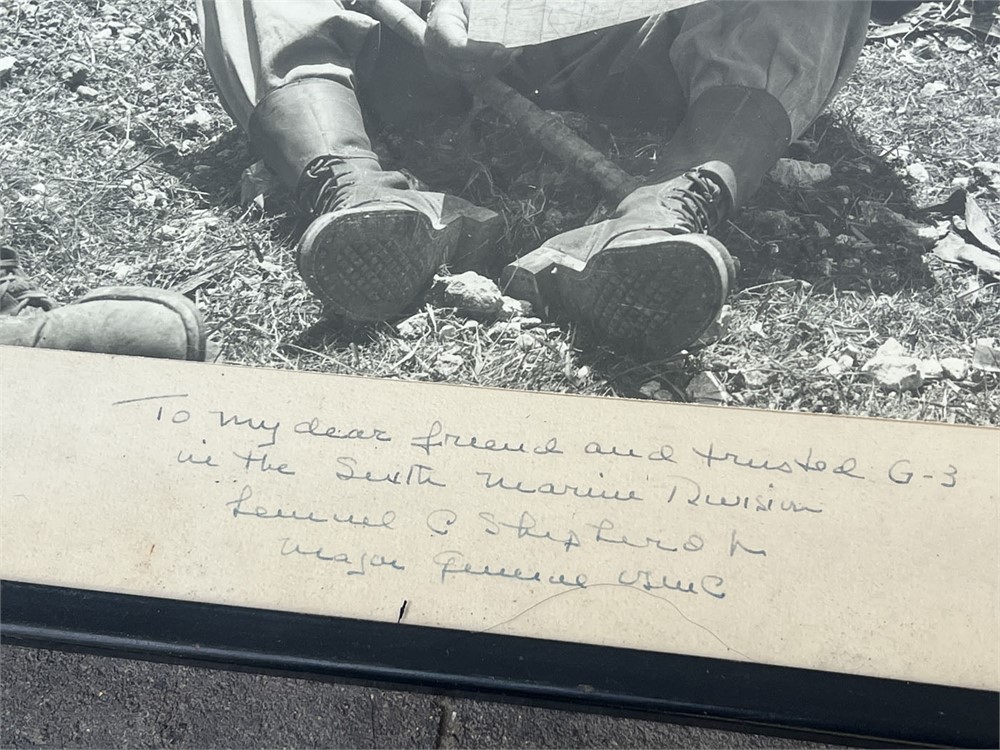 To my dear friend and trusted G-3
in the Sixth Marine Division
Lemuel C Shepherd Jr
Major General USMC